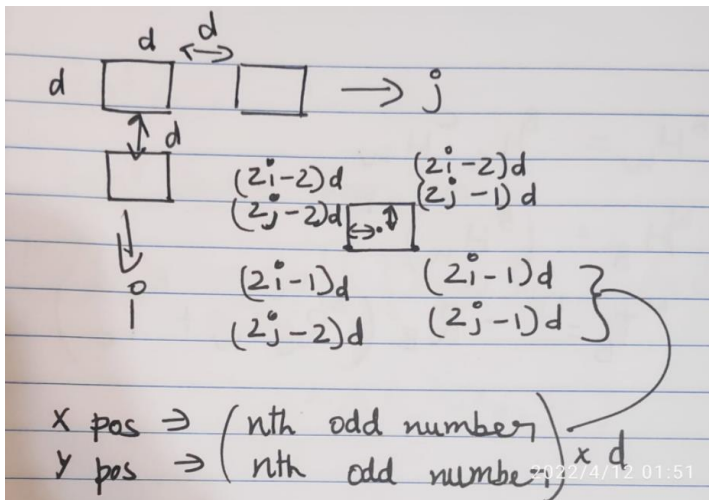 d
d
d
j
d
i
(2i-2)d
(2j-2)d
(2i-2)d
(2j-1)d
(2i-1)d
(2j-2)d
(2i-1)d
(2j-1)d
x pos ⇒ (nth odd number
y pos ⇒ (nth odd number) x d
2022/4/12 01:51